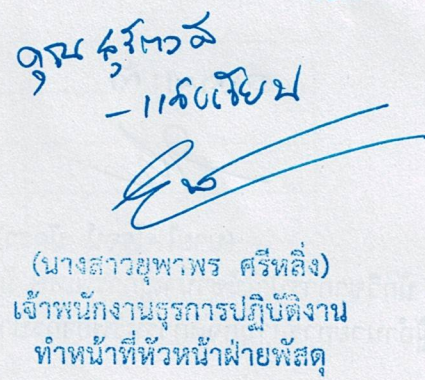 คุณ
- แจ้งเวียน
(นางสาวยุพาพร ศรีหลิ่ง)
เจ้าพนักงานธุรการปฏิบัติงาน
ทำหน้าที่หัวหน้าฝ่ายพัสดุ